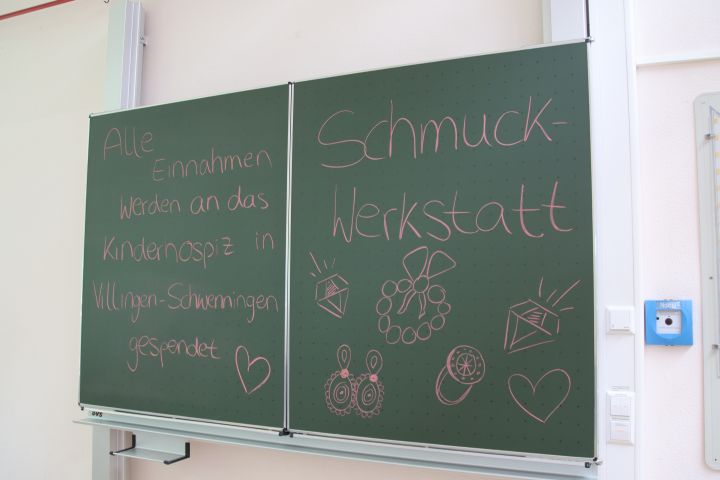 Alle
Einnahmen
werden an das
Kinderhospiz in
Villingen-Schwenningen
gespendet
Schmuck-
Werkstatt
DVS